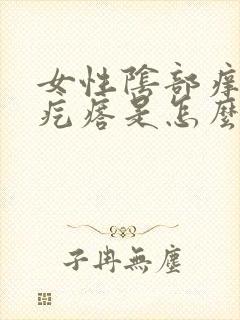 女性陰部痒
疙瘩是怎麼
子冉無塵